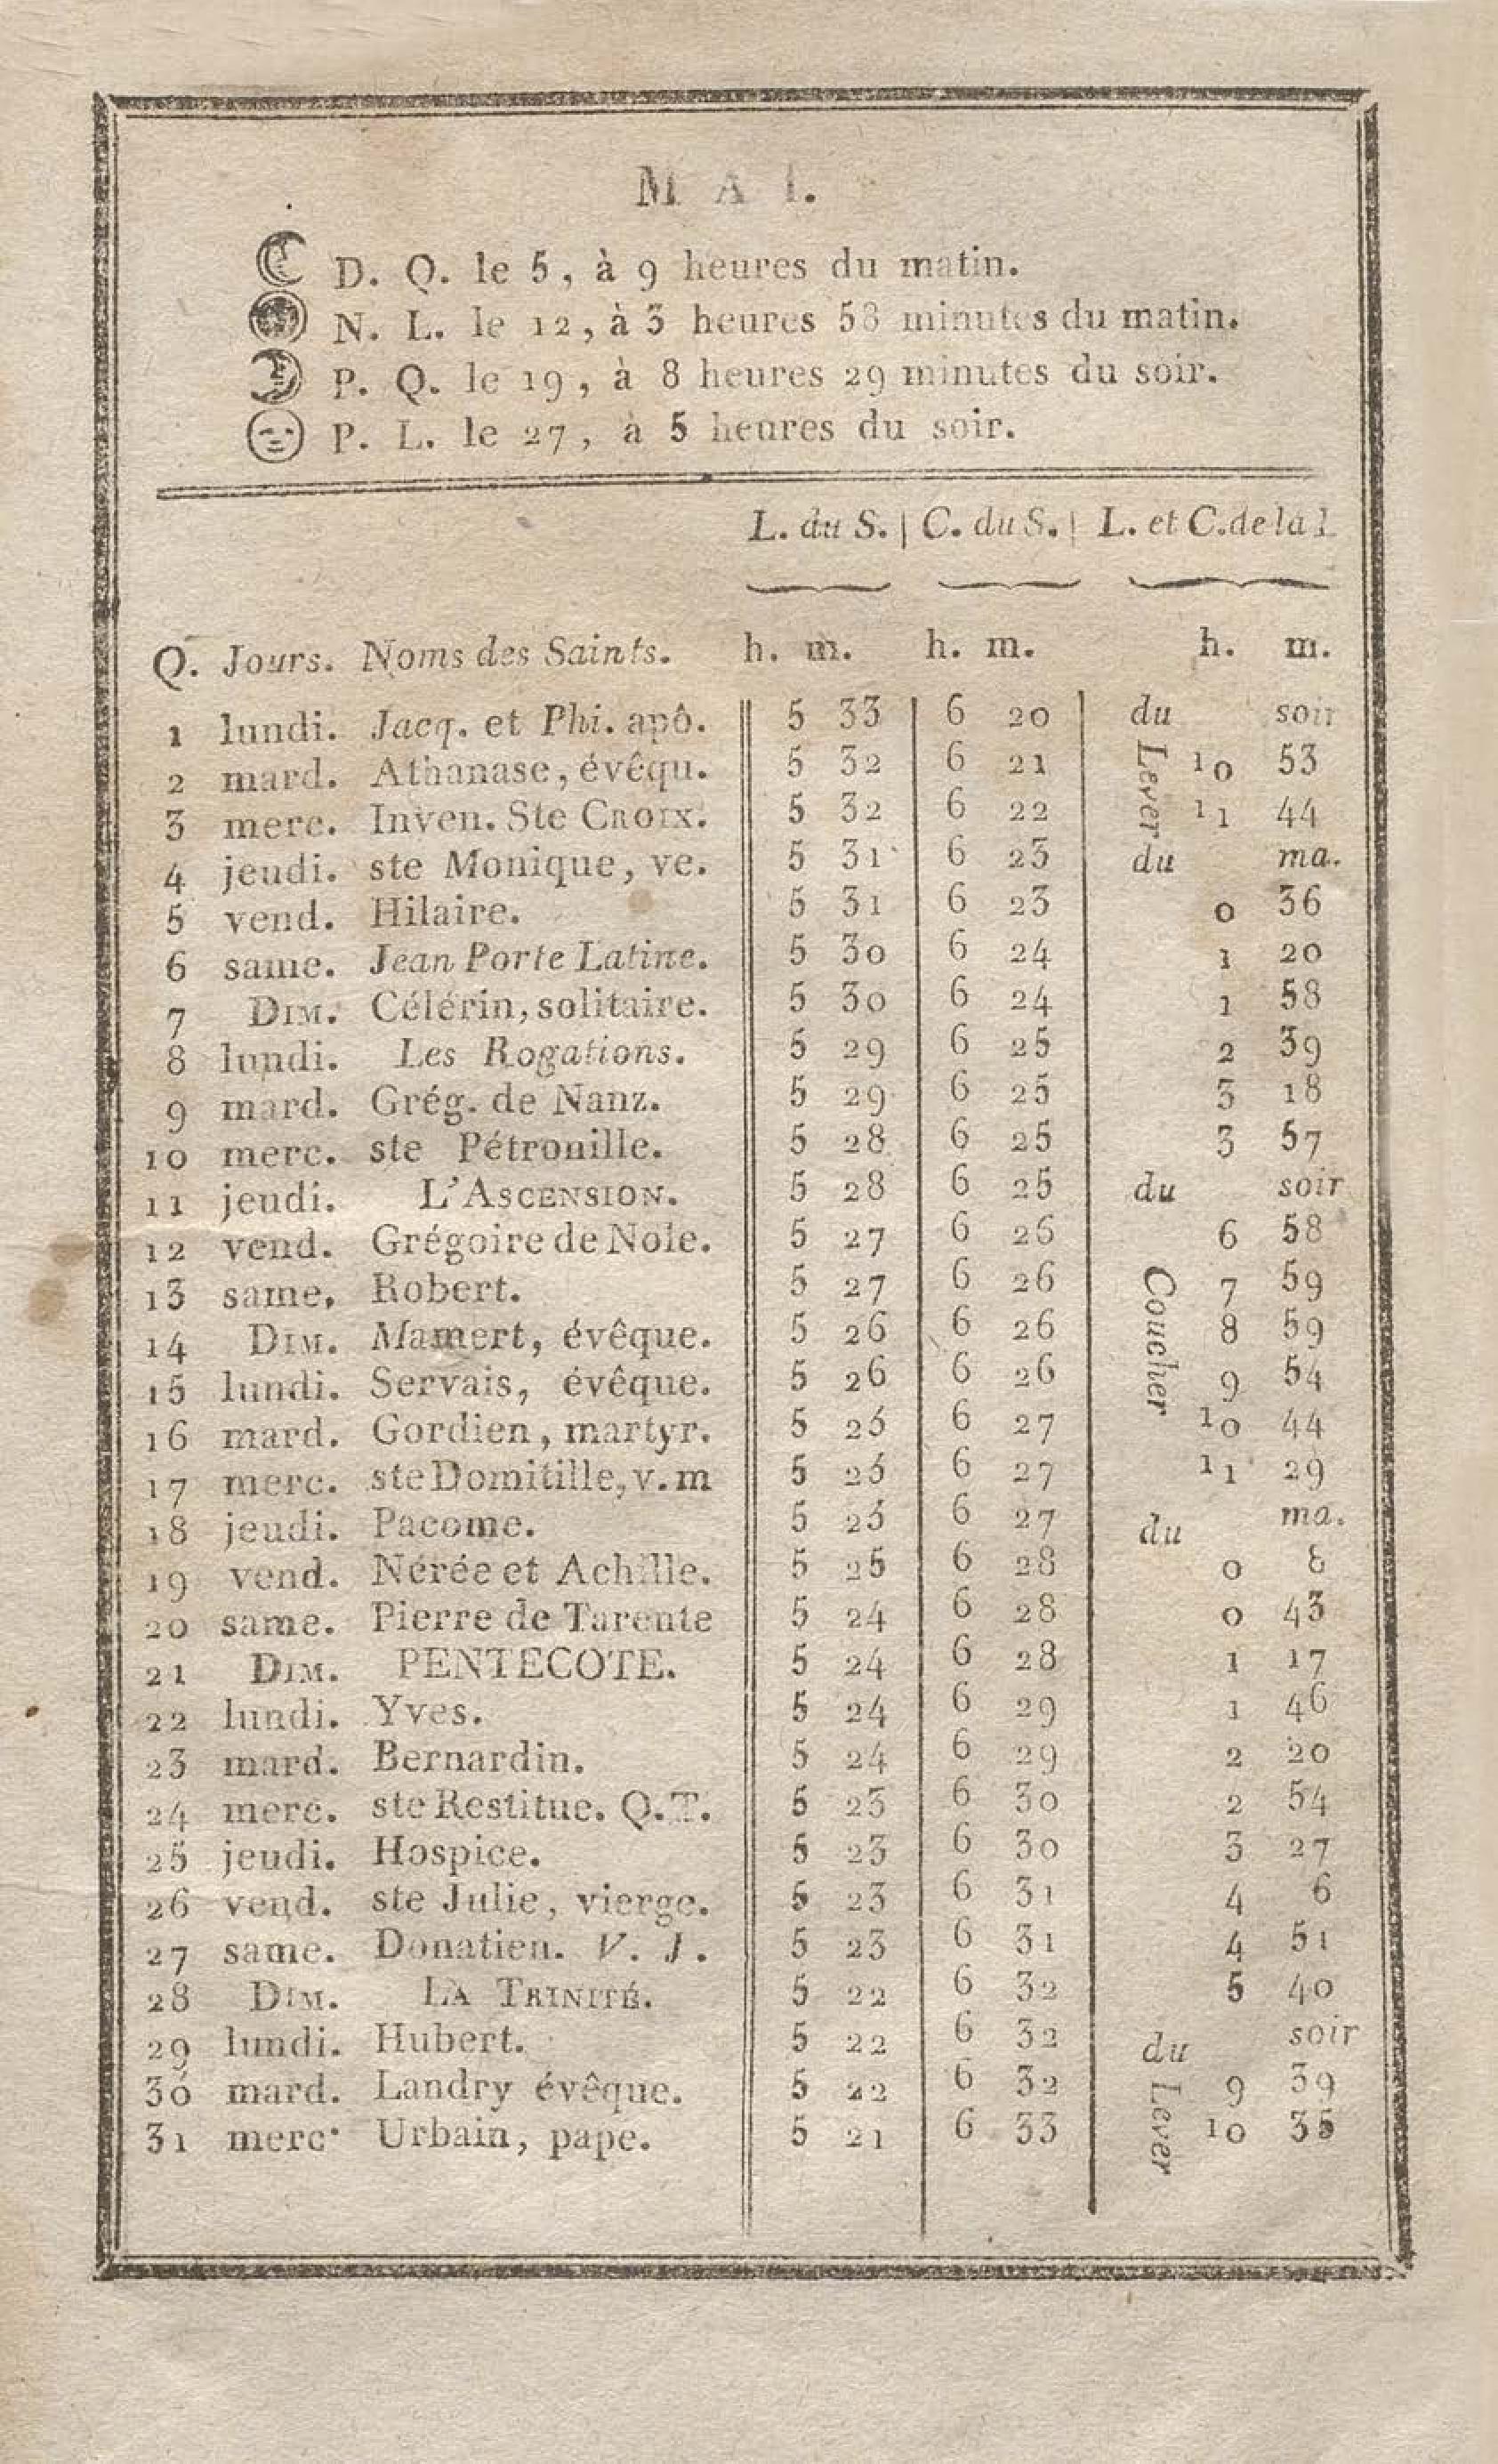 MAI.
D. Q. le 5, à 9 heures du matin.
N. L. le 12, à 3 heures 58 minutes du matin.
P. Q. le 19, à 8 heures 29 minutes du soir.
P. L. le 27, à 5 heures du soir.
L. du S. | C. du S. | L. et C. de la l
Q. Jours. Noms des Saints. h. m. h. m. h. m.
1 lundi. Jacq. et Phi. apô. 5 33 6 20 du soir
2 mard. Athanase, évêqu. 5 32 6 21 Lever 10 53
3 merc. Inven. Ste CROIX. 5 32 6 22 11 44
4 jeudi. ste Monique, ve. 5 31 6 23 du ma.
5 vend. Hilaire. 5 31 6 23 0 36
6 same. Jean Porte Latine. 5 30 6 24 1 20
7 DIM. Célérin, solitaire. 5 30 6 24 1 58
8 lundi. Les Rogations. 5 29 6 25 2 39
9 mard. Grég. de Nanz. 5 29 6 25 3 18
10 merc. ste Pétronille. 5 28 6 25 3 57
11 jeudi. L'ASCENSION. 5 28 6 25 du soir
12 vend. Grégoire de Nole. 5 27 6 26 6 58
13 same. Robert. 5 27 6 26 Coucher 7 59
14 DIM. Mamert, évêque. 5 26 6 26 8 59
15 lundi. Servais, évêque. 5 26 6 26 9 54
16 mard. Gordien, martyr. 5 25 6 27 10 44
17 merc. ste Domitille, v. m 5 25 6 27 11 29
18 jeudi. Pacome. 5 25 6 27 du ma.
19 vend. Nérée et Achille. 5 25 6 28 0 8
20 same. Pierre de Tarente 5 24 6 28 0 43
21 DIM. PENTECOTE. 5 24 6 28 1 17
22 lundi. Yves. 5 24 6 29 1 46
23 mard. Bernardin. 5 24 6 29 2 20
24 merc. ste Restitue. Q.T. 5 23 6 30 2 54
25 jeudi. Hospice. 5 23 6 30 3 27
26 vend. ste Julie, vierge. 5 23 6 31 4 6
27 same. Donatien. V. J. 5 23 6 31 4 51
28 DIM. LA TRINITÉ. 5 22 6 32 5 40
29 lundi. Hubert. 5 22 6 32 du soir
30 mard. Landry évêque. 5 22 6 32 Lever 9 39
31 merc. Urbain, pape. 5 21 6 33 10 35